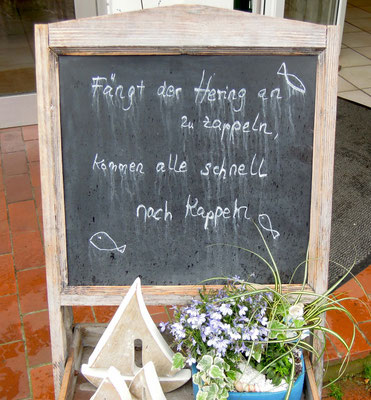 Fängt der Hering an
zu zappeln,
kommen alle schnell
nach Kappeln